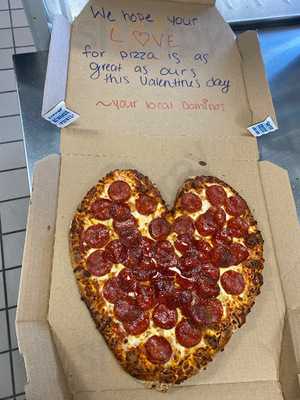 We hope your
L♡VE
for pizza is as
great as ours
this Valentines day
~your local Dominos